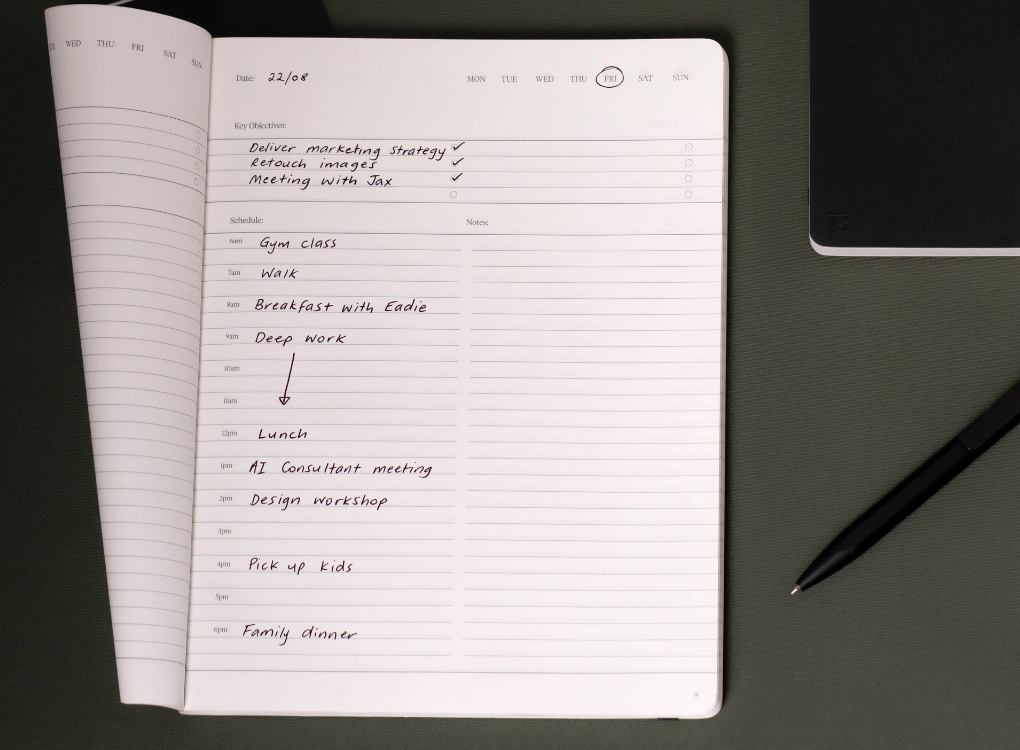 WED THU FRI SAT SUN
Date: 22/08 MON TUE WED THU FRI SAT SUN
Key Objectives:
Deliver marketing strategy
Retouch images
Meeting with Jax
Schedule: Notes:
6am Gym class
7am Walk
8am Breakfast with Eadie
9am Deep work
10am
11am
12pm Lunch
1pm AI Consultant meeting
2pm Design workshop
3pm
4pm Pick up kids
5pm
6pm Family dinner